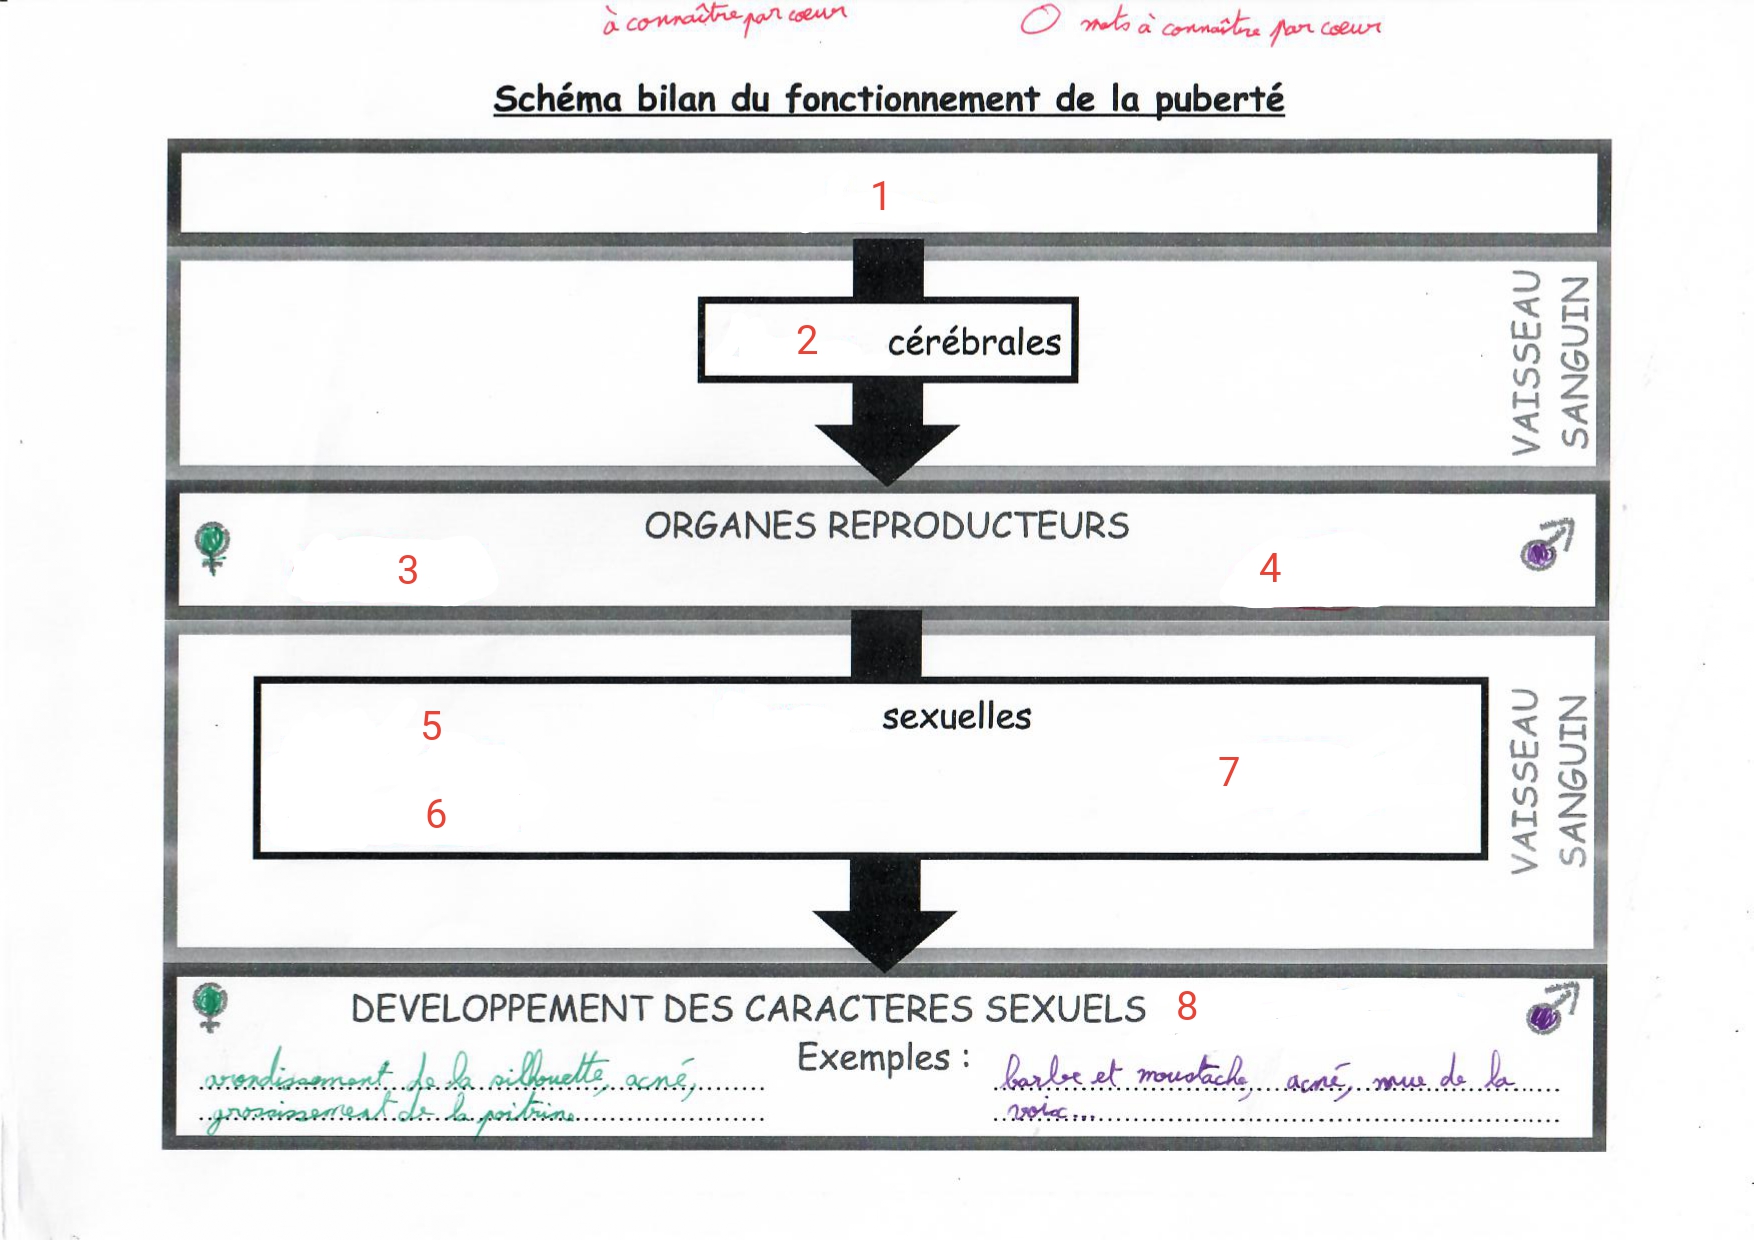 à connaître par coeur
O mots à connaître par coeur
Schéma bilan du fonctionnement de la puberté
1
2 cérébrales
VAISSEAU
SANGUIN
ORGANES REPRODUCTEURS
3
4
5
sexuelles
7
6
VAISSEAU
SANGUIN
DEVELOPPEMENT DES CARACTERES SEXUELS 8
Exemples :
arrondissement de la silhouette, acné,
grossissement de la poitrine
barbe et moustache, acné, mue de la
voix...